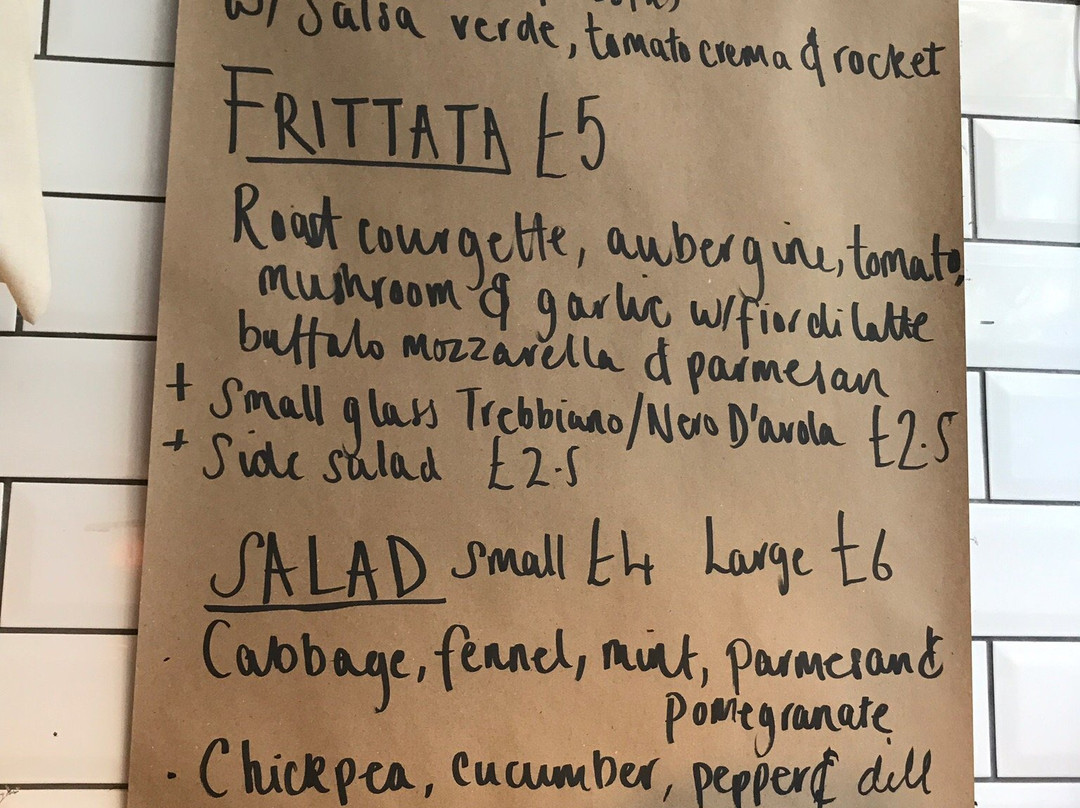 w/ Salsa verde, tomato crema & rocket
FRITTATA £5
Roast courgette, aubergine, tomato,
mushroom & garlic w/ fior di latte
buffalo mozzarella & parmesan
+ Small glass Trebbiano/Nero D'avola £2.5
+ Side salad £2.5
SALAD Small £4 Large £6
· Cabbage, fennel, mint, parmesan &
pomegranate
· Chickpea, cucumber, pepper & dill